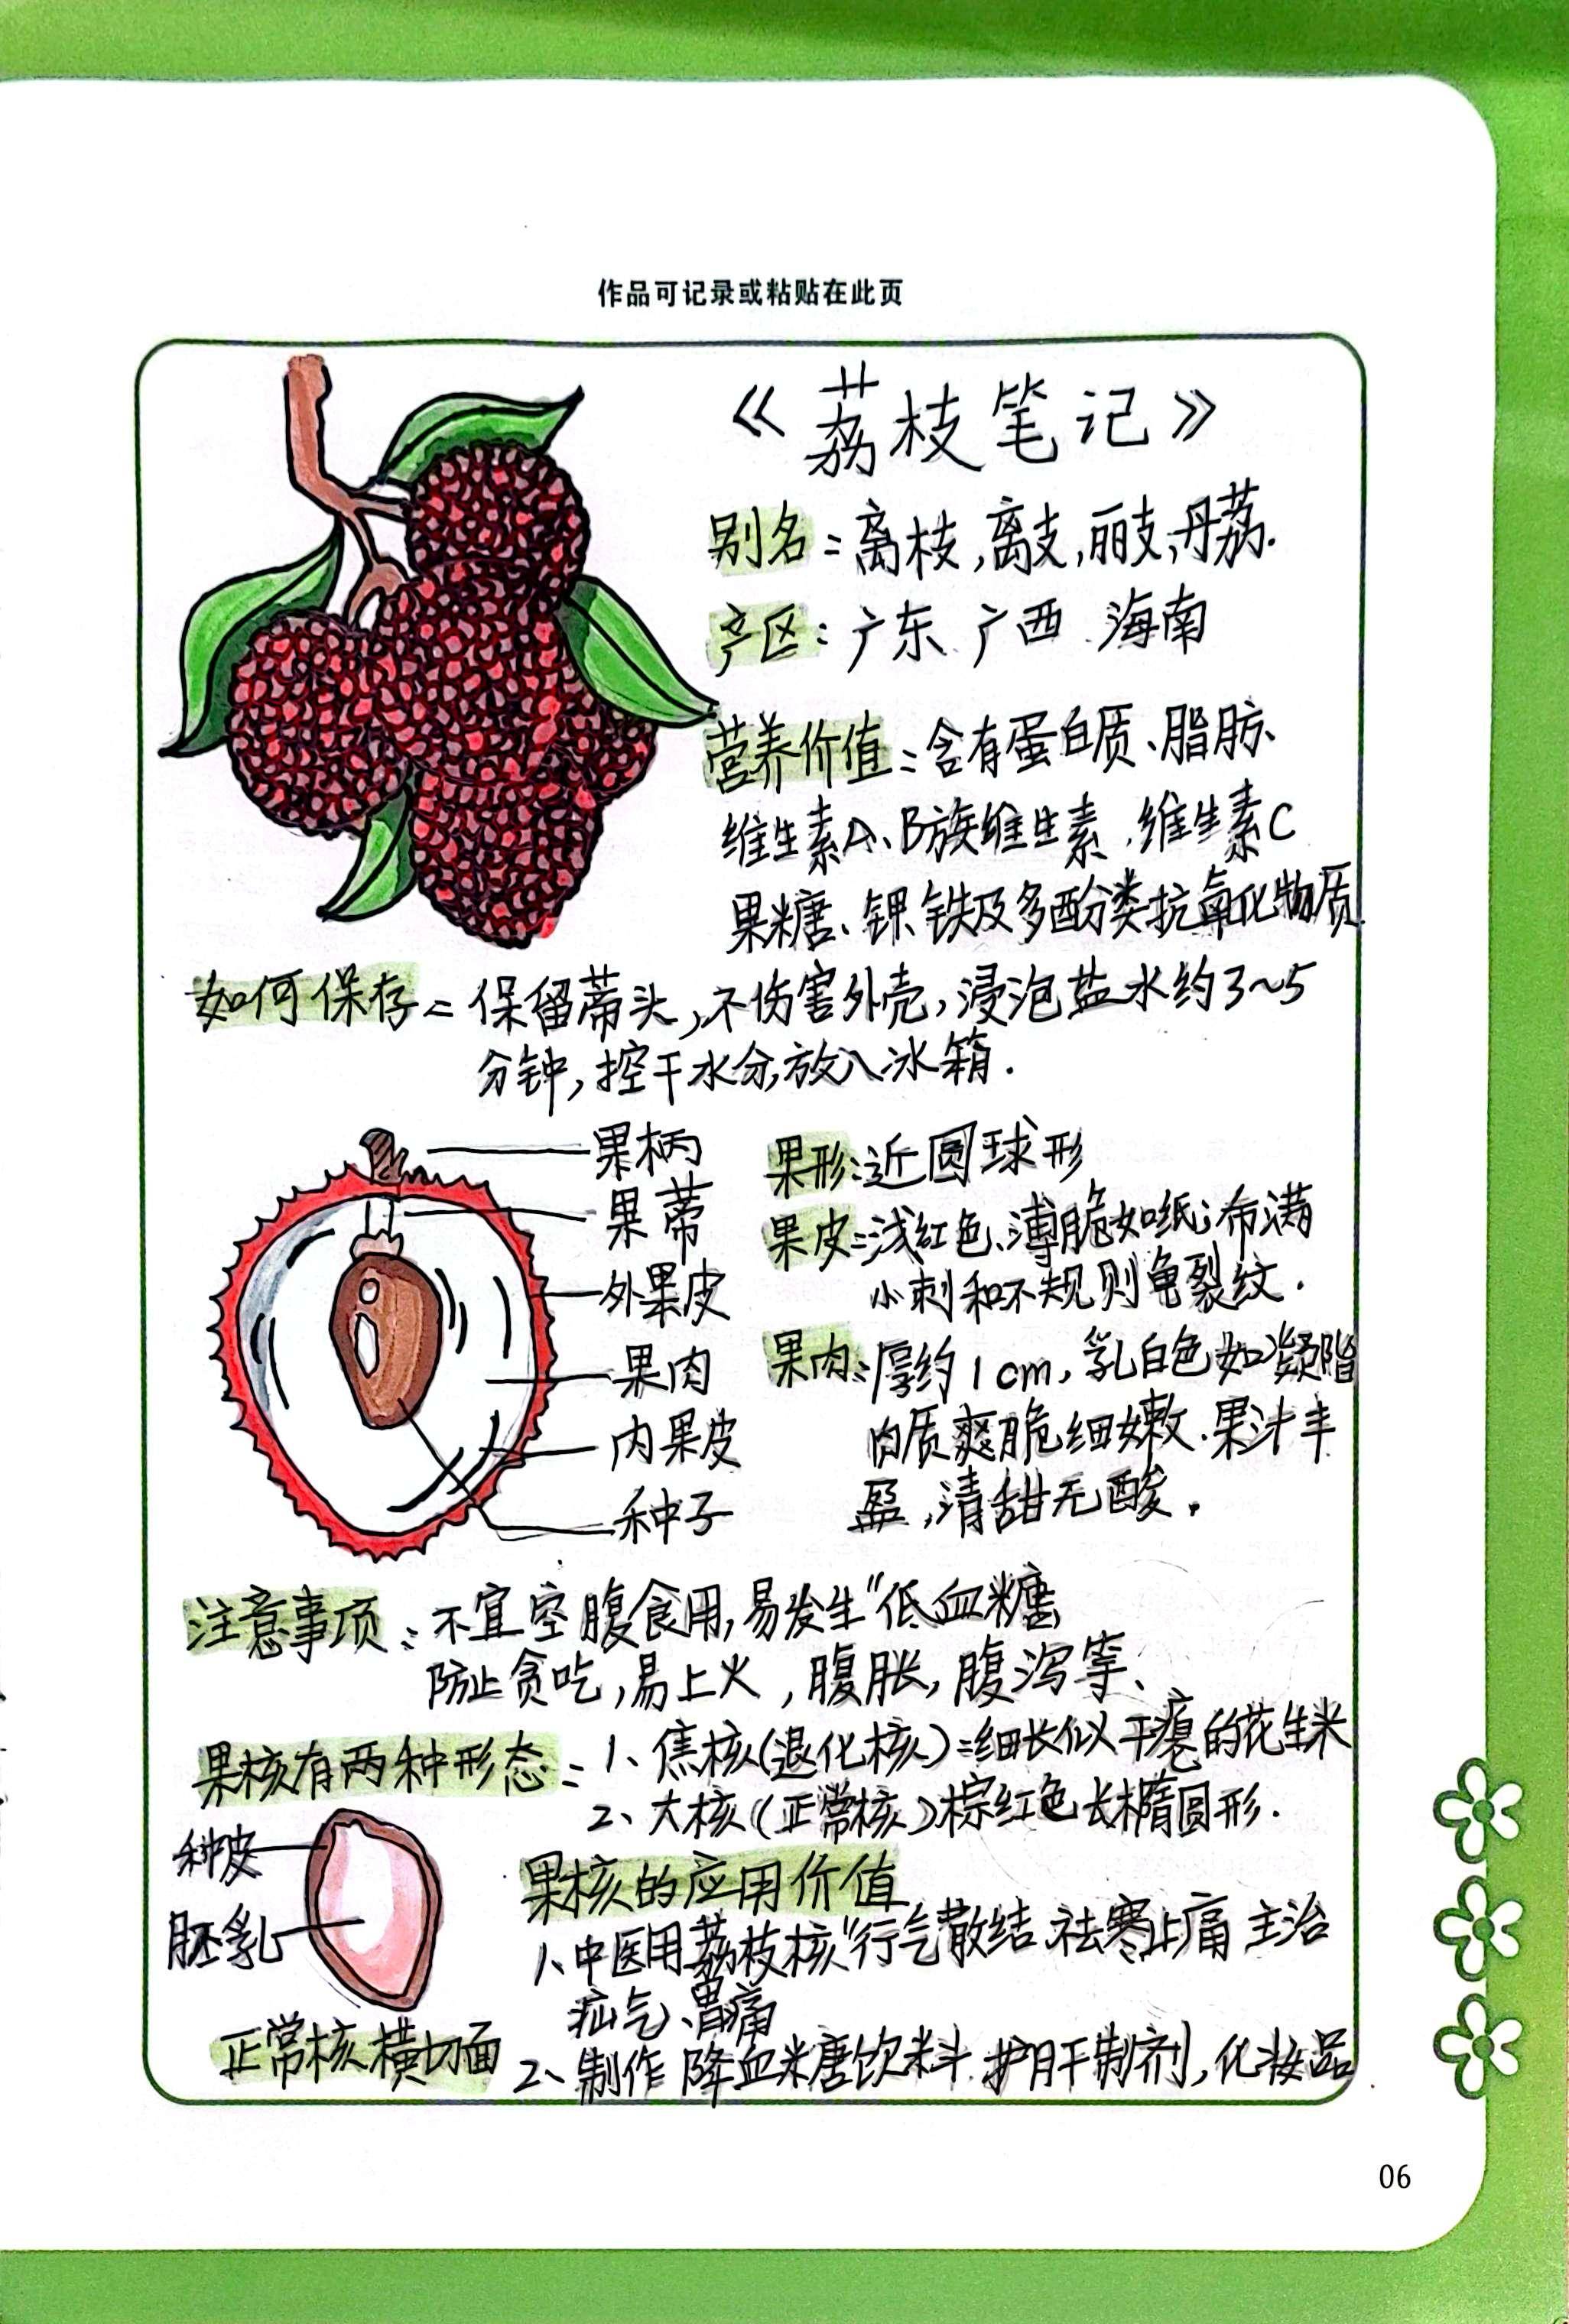 作品可记录或粘贴在此页
《荔枝笔记》
别名：离枝,离支,丽支,丹荔.
产区：广东、广西、海南
营养价值：含有蛋白质、脂肪、
维生素A、B族维生素、维生素C
果糖、钾、铁及多酚类抗氧化物质
如何保存：保留蒂头,不伤害外壳,浸泡盐水约3~5
分钟,控干水分,放入冰箱.
果柄
果蒂
外果皮
果肉
内果皮
种子
果形：近圆球形
果皮：浅红色、薄脆如纸；布满
小刺和不规则龟裂纹.
果肉：厚约1cm,乳白色如凝脂
肉质爽脆细嫩.果汁丰
盈,清甜无酸.
注意事项：不宜空腹食用,易发生"低血糖
防止贪吃,易上火,腹胀,腹泻等、
果核有两种形态：1、焦核(退化核)：细长似干瘪的花生米
2、大核(正常核)棕红色长椭圆形.
种皮
胚乳
正常核横切面
果核的应用价值
1、中医用荔枝核"行气散结、祛寒止痛 主治
疝气、胃痛
2、制作降血糖饮料、护肝制剂,化妆品
06